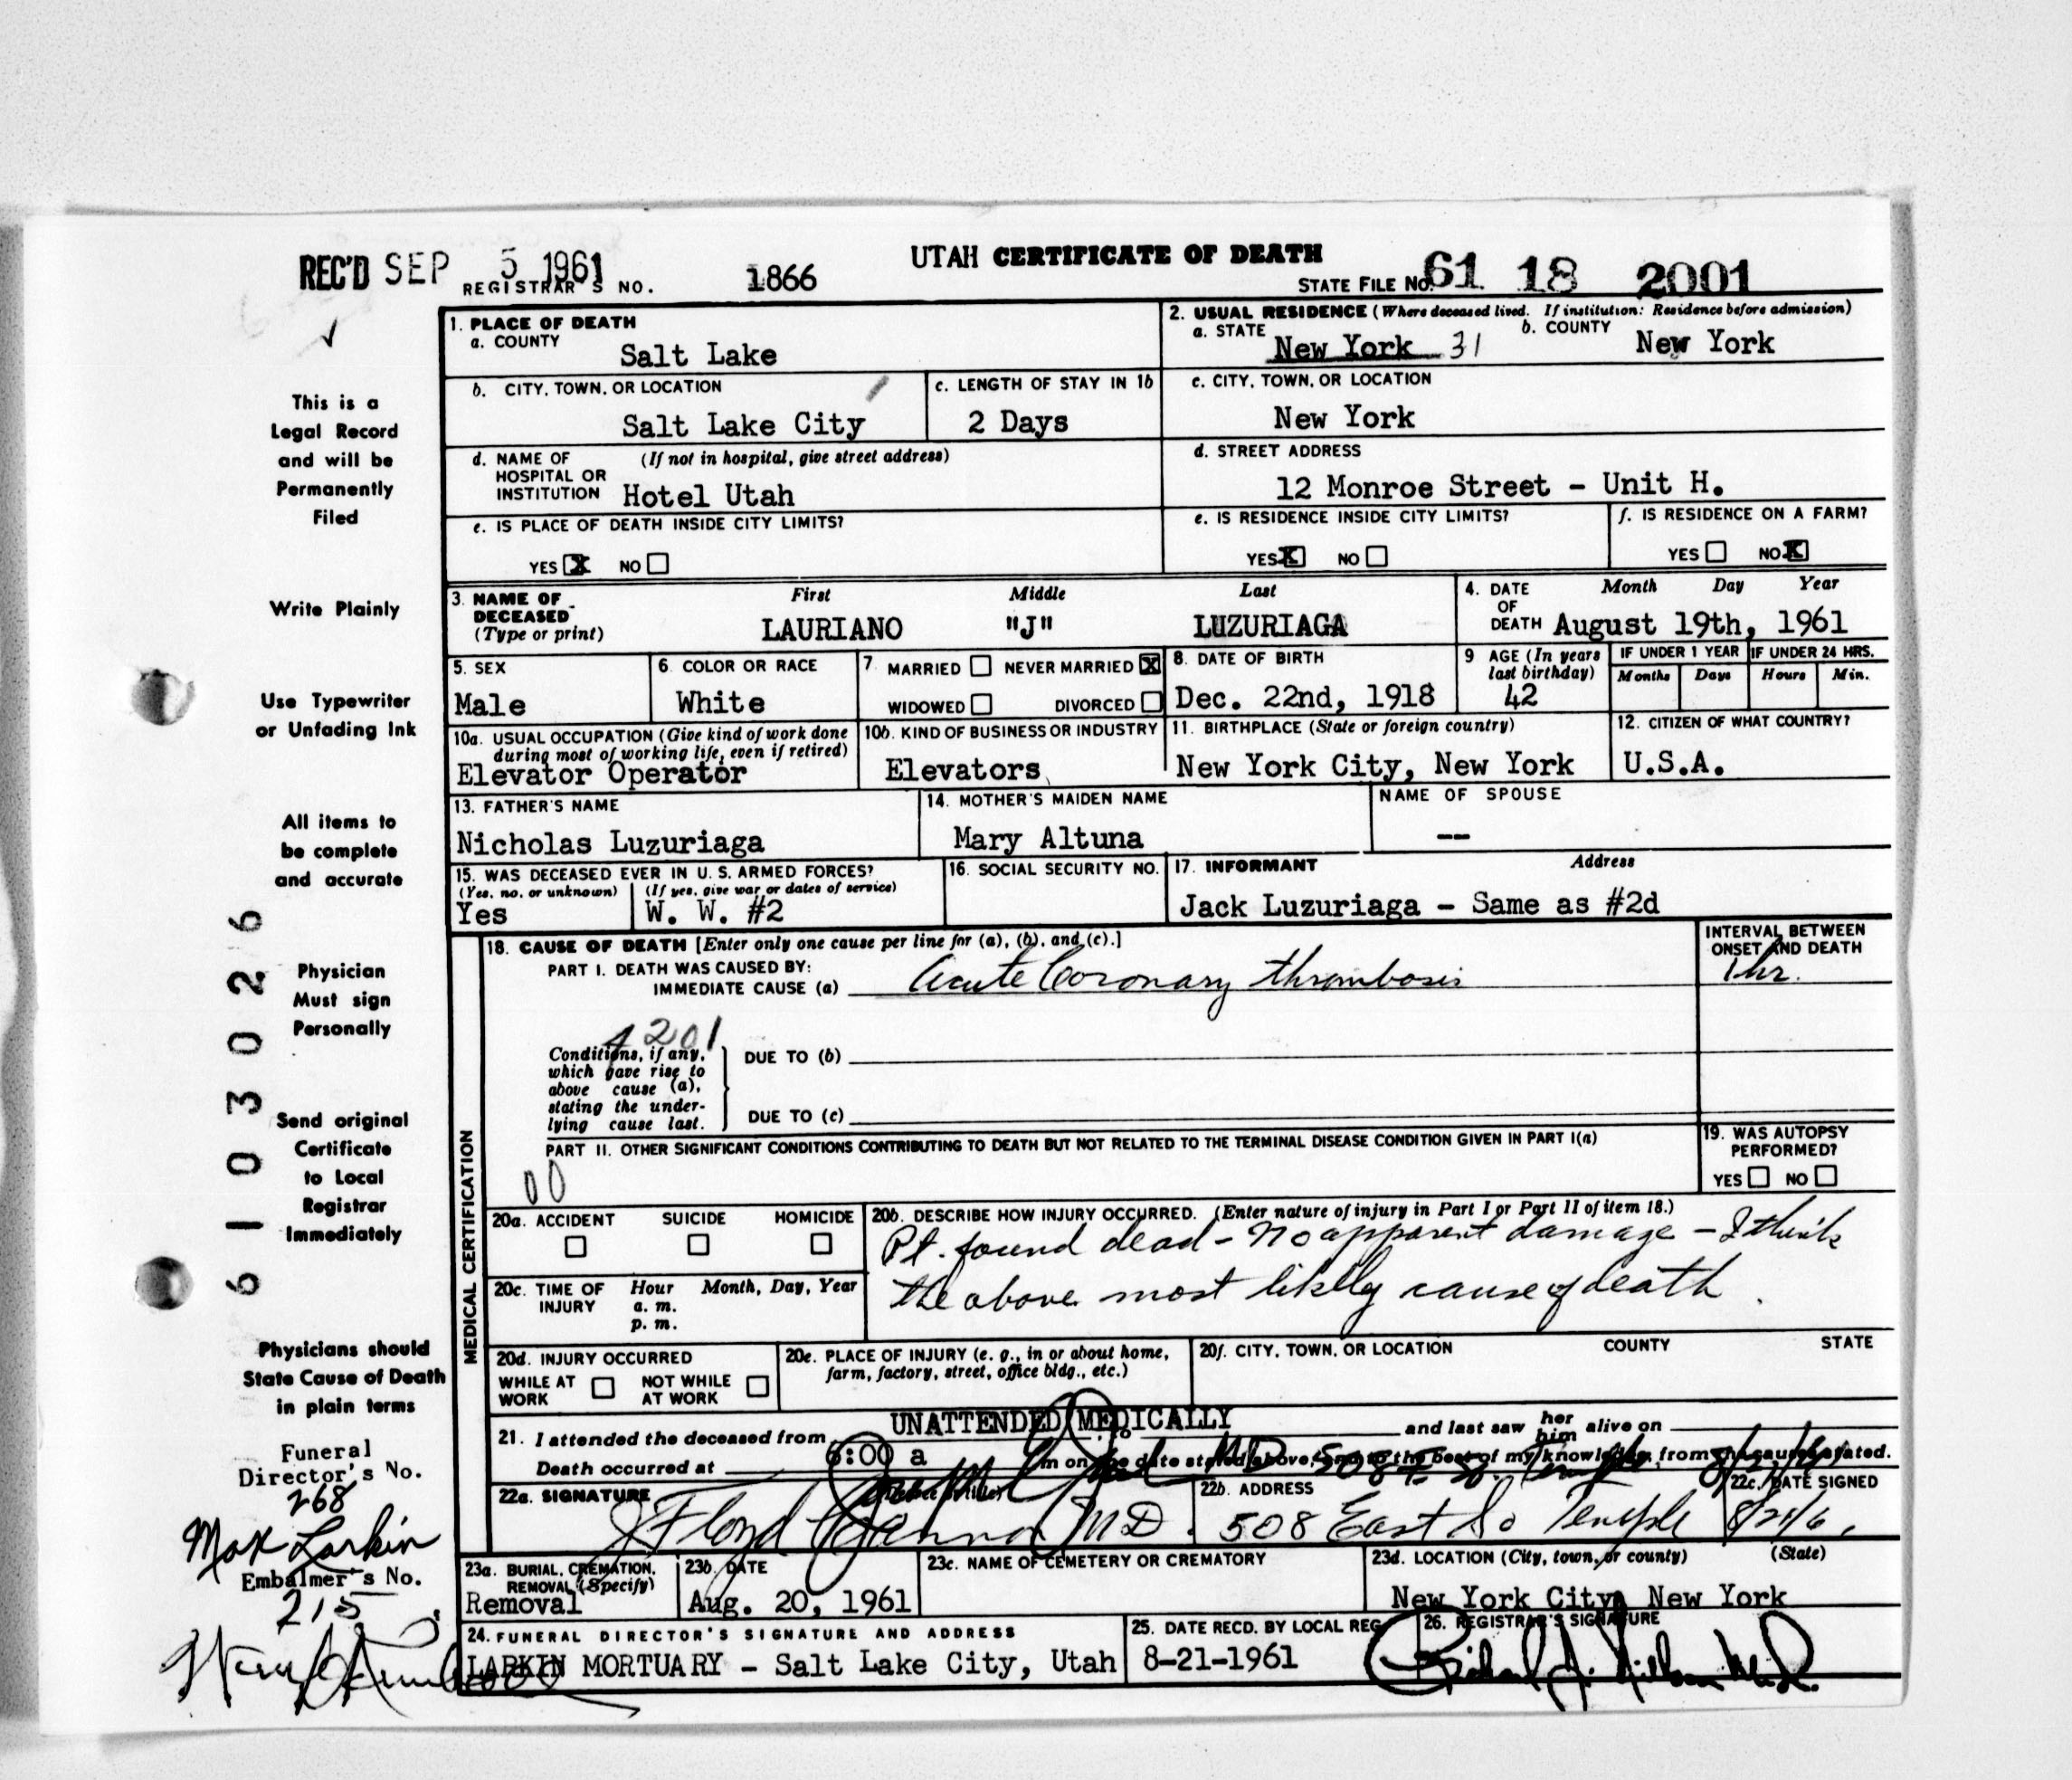 UTAH CERTIFICATE OF DEATH
REC'D SEP 5 1961
REGISTRAR'S NO. 1866
STATE FILE NO. 61 18 2001
This is a
Legal Record
and will be
Permanently
Filed
Write Plainly
Use Typewriter
or Unfading Ink
All items to
be complete
and accurate
Physician
Must sign
Personally
Send original
Certificate
to Local
Registrar
Immediately
Physicians should
State Cause of Death
in plain terms
Funeral
Director's No.
268
Max Larkin
Embalmer's No.
215
6103026
1. PLACE OF DEATH
a. COUNTY
Salt Lake
2. USUAL RESIDENCE (Where deceased lived. If institution: Residence before admission)
a. STATE New York 31
b. COUNTY New York
b. CITY, TOWN, OR LOCATION
Salt Lake City
c. LENGTH OF STAY IN 1b
2 Days
c. CITY, TOWN, OR LOCATION
New York
d. NAME OF HOSPITAL OR INSTITUTION (If not in hospital, give street address)
Hotel Utah
d. STREET ADDRESS
12 Monroe Street - Unit H.
e. IS PLACE OF DEATH INSIDE CITY LIMITS?
YES X NO
e. IS RESIDENCE INSIDE CITY LIMITS?
YES X NO
f. IS RESIDENCE ON A FARM?
YES NO X
3. NAME OF DECEASED (Type or print)
First Middle Last
LAURIANO "J" LUZURIAGA
4. DATE OF DEATH Month Day Year
August 19th, 1961
5. SEX
Male
6. COLOR OR RACE
White
7. MARRIED NEVER MARRIED X
WIDOWED DIVORCED
8. DATE OF BIRTH
Dec. 22nd, 1918
9 AGE (In years last birthday)
42
IF UNDER 1 YEAR
Months Days
IF UNDER 24 HRS.
Hours Min.
10a. USUAL OCCUPATION (Give kind of work done during most of working life, even if retired)
Elevator Operator
10b. KIND OF BUSINESS OR INDUSTRY
Elevators
11. BIRTHPLACE (State or foreign country)
New York City, New York
12. CITIZEN OF WHAT COUNTRY?
U.S.A.
13. FATHER'S NAME
Nicholas Luzuriaga
14. MOTHER'S MAIDEN NAME
Mary Altuna
NAME OF SPOUSE
--
15. WAS DECEASED EVER IN U. S. ARMED FORCES?
(Yes, no, or unknown) (If yes, give war or dates of service)
Yes W. W. #2
16. SOCIAL SECURITY NO.
17. INFORMANT Address
Jack Luzuriaga - Same as #2d
MEDICAL CERTIFICATION
18. CAUSE OF DEATH [Enter only one cause per line for (a), (b), and (c).]
PART I. DEATH WAS CAUSED BY:
IMMEDIATE CAUSE (a) Acute Coronary thrombosis
INTERVAL BETWEEN ONSET AND DEATH
1 hr.
4201
Conditions, if any, which gave rise to above cause (a), stating the underlying cause last.
DUE TO (b)
DUE TO (c)
PART II. OTHER SIGNIFICANT CONDITIONS CONTRIBUTING TO DEATH BUT NOT RELATED TO THE TERMINAL DISEASE CONDITION GIVEN IN PART I(a)
00
19. WAS AUTOPSY PERFORMED?
YES NO
20a. ACCIDENT SUICIDE HOMICIDE
20b. DESCRIBE HOW INJURY OCCURRED. (Enter nature of injury in Part I or Part II of item 18.)
Pt. found dead - No apparent damage - I think
the above most likely cause of death.
20c. TIME OF INJURY Hour Month, Day, Year
a. m.
p. m.
20d. INJURY OCCURRED
WHILE AT WORK NOT WHILE AT WORK
20e. PLACE OF INJURY (e. g., in or about home, farm, factory, street, office bldg., etc.)
20f. CITY, TOWN, OR LOCATION COUNTY STATE
UNATTENDED MEDICALLY
21. I attended the deceased from to and last saw her him alive on
Death occurred at 6:00 a m on the date stated above, and to the best of my knowledge, from the causes stated.
22a. SIGNATURE
22b. ADDRESS
508 East So Temple
22c. DATE SIGNED
8/21/61
23a. BURIAL, CREMATION, REMOVAL (Specify)
Removal
23b. DATE
Aug. 20, 1961
23c. NAME OF CEMETERY OR CREMATORY
23d. LOCATION (City, town, or county) (State)
New York City, New York
24. FUNERAL DIRECTOR'S SIGNATURE AND ADDRESS
LARKIN MORTUARY - Salt Lake City, Utah
25. DATE RECD. BY LOCAL REG
8-21-1961
26. REGISTRAR'S SIGNATURE